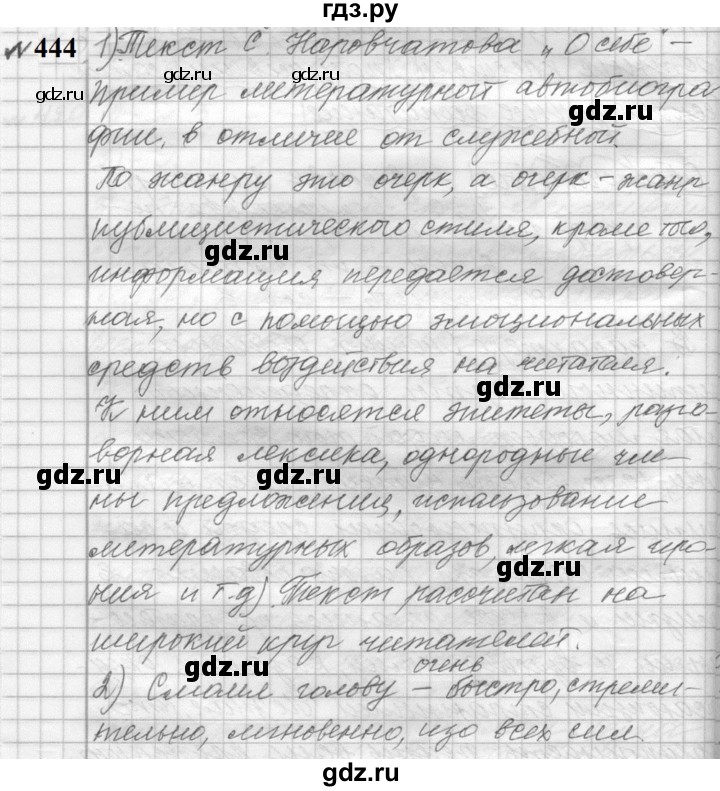 гдз.ру
№444 1) Текст С. Наровчатова „О себе" –
gdz.ru gdz.ru gdz.ru
пример литературной автобиогра
gdz.ru
фии, в отличие от служебный.
По жанру это очерк, а очерк – жанр
публицистического стиля, кроме того,
gdz.ru
информация передается достовер-
ная, но с помощью эмоциональных
средств воздействия на читателя.
gdz.ru
К ним относятся эпитеты, разго-
ворная лексика, однородные чле-
gdz.ru gdz.ru
ны предложения, использование
литературных образов, легкая иро-
gdz.ru
ния и т.д). Текст рассчитан на
широкий круг читателей.
gdz.ru
2). Сломя голову – очень быстро, стреми-
тельно, мгновенно, изо всех сил.
gdz.ru gdz.ru